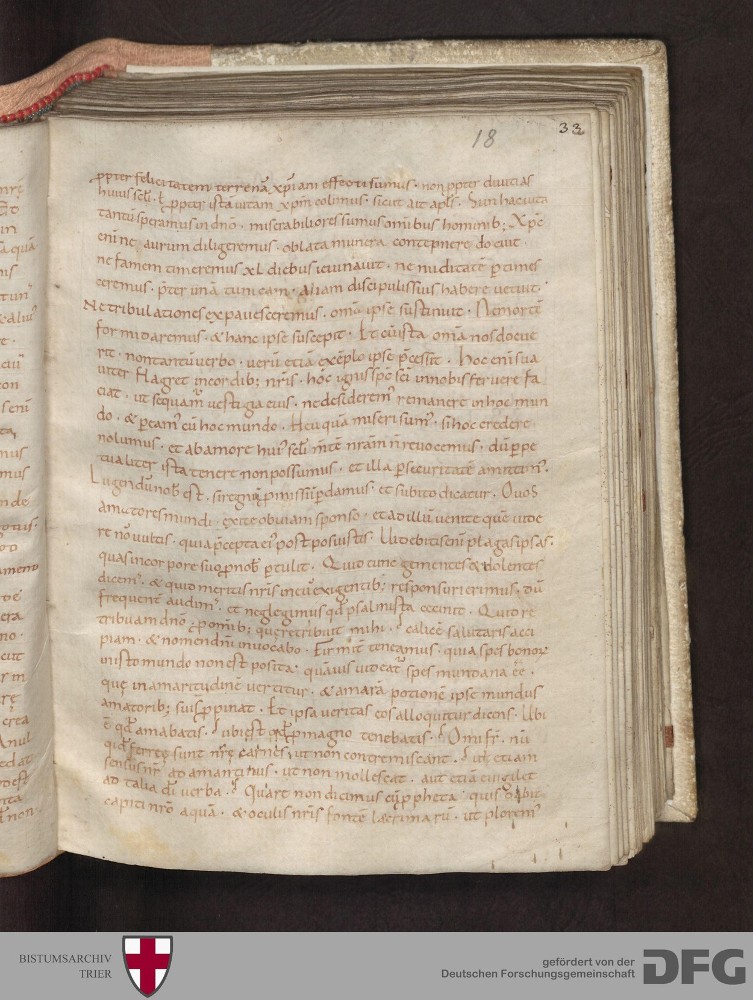 18
33
ppter felicitatem terrenā xp̄iani effecti sumus · non ppter diuitias
huius sc̄li · ł ppter istā uitam xp̄m colimus · sicut ait apl̄s · Si in hac uita
tantū speramus in dn̄o · miserabiliores sumus omībus hominib; Xp̄c
eni ne aurum diligeremus · oblata munera contepnere docuit ·
ne famem timeremus xl diebus ieiunauit · ne nuditatē ptimes
ceremus · pter unā tunicam · aliam discipulis suis habere uetuit ·
Ne tribulationes expauesceremus · omīa ipse sustinuit · Ne mortē
formidaremus · & hanc ipse suscepit · Et cū ista omīa nos docue
rit · non tantū uerbo · uerū etiā exēplo ipse pcessit · Hoc enī sua
uiter flagret in cordib; nr̄is · hoc ignis sp̄c sc̄i in nobis feruere fa
ciat · ut sequamr̄ uestigia eius · ne desideremr̄ remanere in hoc mun
do · & peam' cū hoc mundo · Heu quā miseri sum' · si hoc credere
nolumus · et ab amore hui' sc̄li mtē nr̄am n̄ reuocemus · dū ppe
tualiter ista tenere non possumus · et illa pseueritatē amittim' ·
Lugendū nob est · si regnū pmissū pdamus · et subito dicatur · O uos
amatores mundi · exite obuiam sponso · et ad illū uenite quē uide
re no uultis · quia pcepta ei' postposuistis · Ubi debitis enī plagas ipsas ·
quas in corpore suo p nob' ptulit · Quid tunc gementes & dolentes
dicem' · & quid meritis nr̄is in eū exigentib; responsuri erimus · dū
frequenē audim' · et neglegimus qd psalmista cecinit · Quid re
tribuam dn̄o p omīb; que retribuit mihi · calicē salutaris acci
piam · & nomen dn̄i inuocabo · Firmitē teneamus · quia spes bonoꝝ
in isto mundo non est posita · quāuis uideat' spes mundana ēē ·
que in amaritudinē uertitur · & amarā potionē ipse mundus
amatorib; suis ppinat · Et ipsa ueritas eos alloquitur dicens · Ubi
ē qd amabatis · ubi est qd p magno tenebatis · O mi fr̄ · nū
quid ferree sunt nr̄e carnes · ut non contremiscant · ut etiam
sensus nr̄ adamantinus · ut non mollescat · aut etiā euigilet
ad talia di uerba · Quare non dicimus cū ppheta · quis dabit
capiti nr̄o aquā · & oculis nr̄is fonte lacrimarū · ut plorem'
BISTUMSARCHIV
TRIER
gefördert von der
Deutschen Forschungsgemeinschaft
DFG